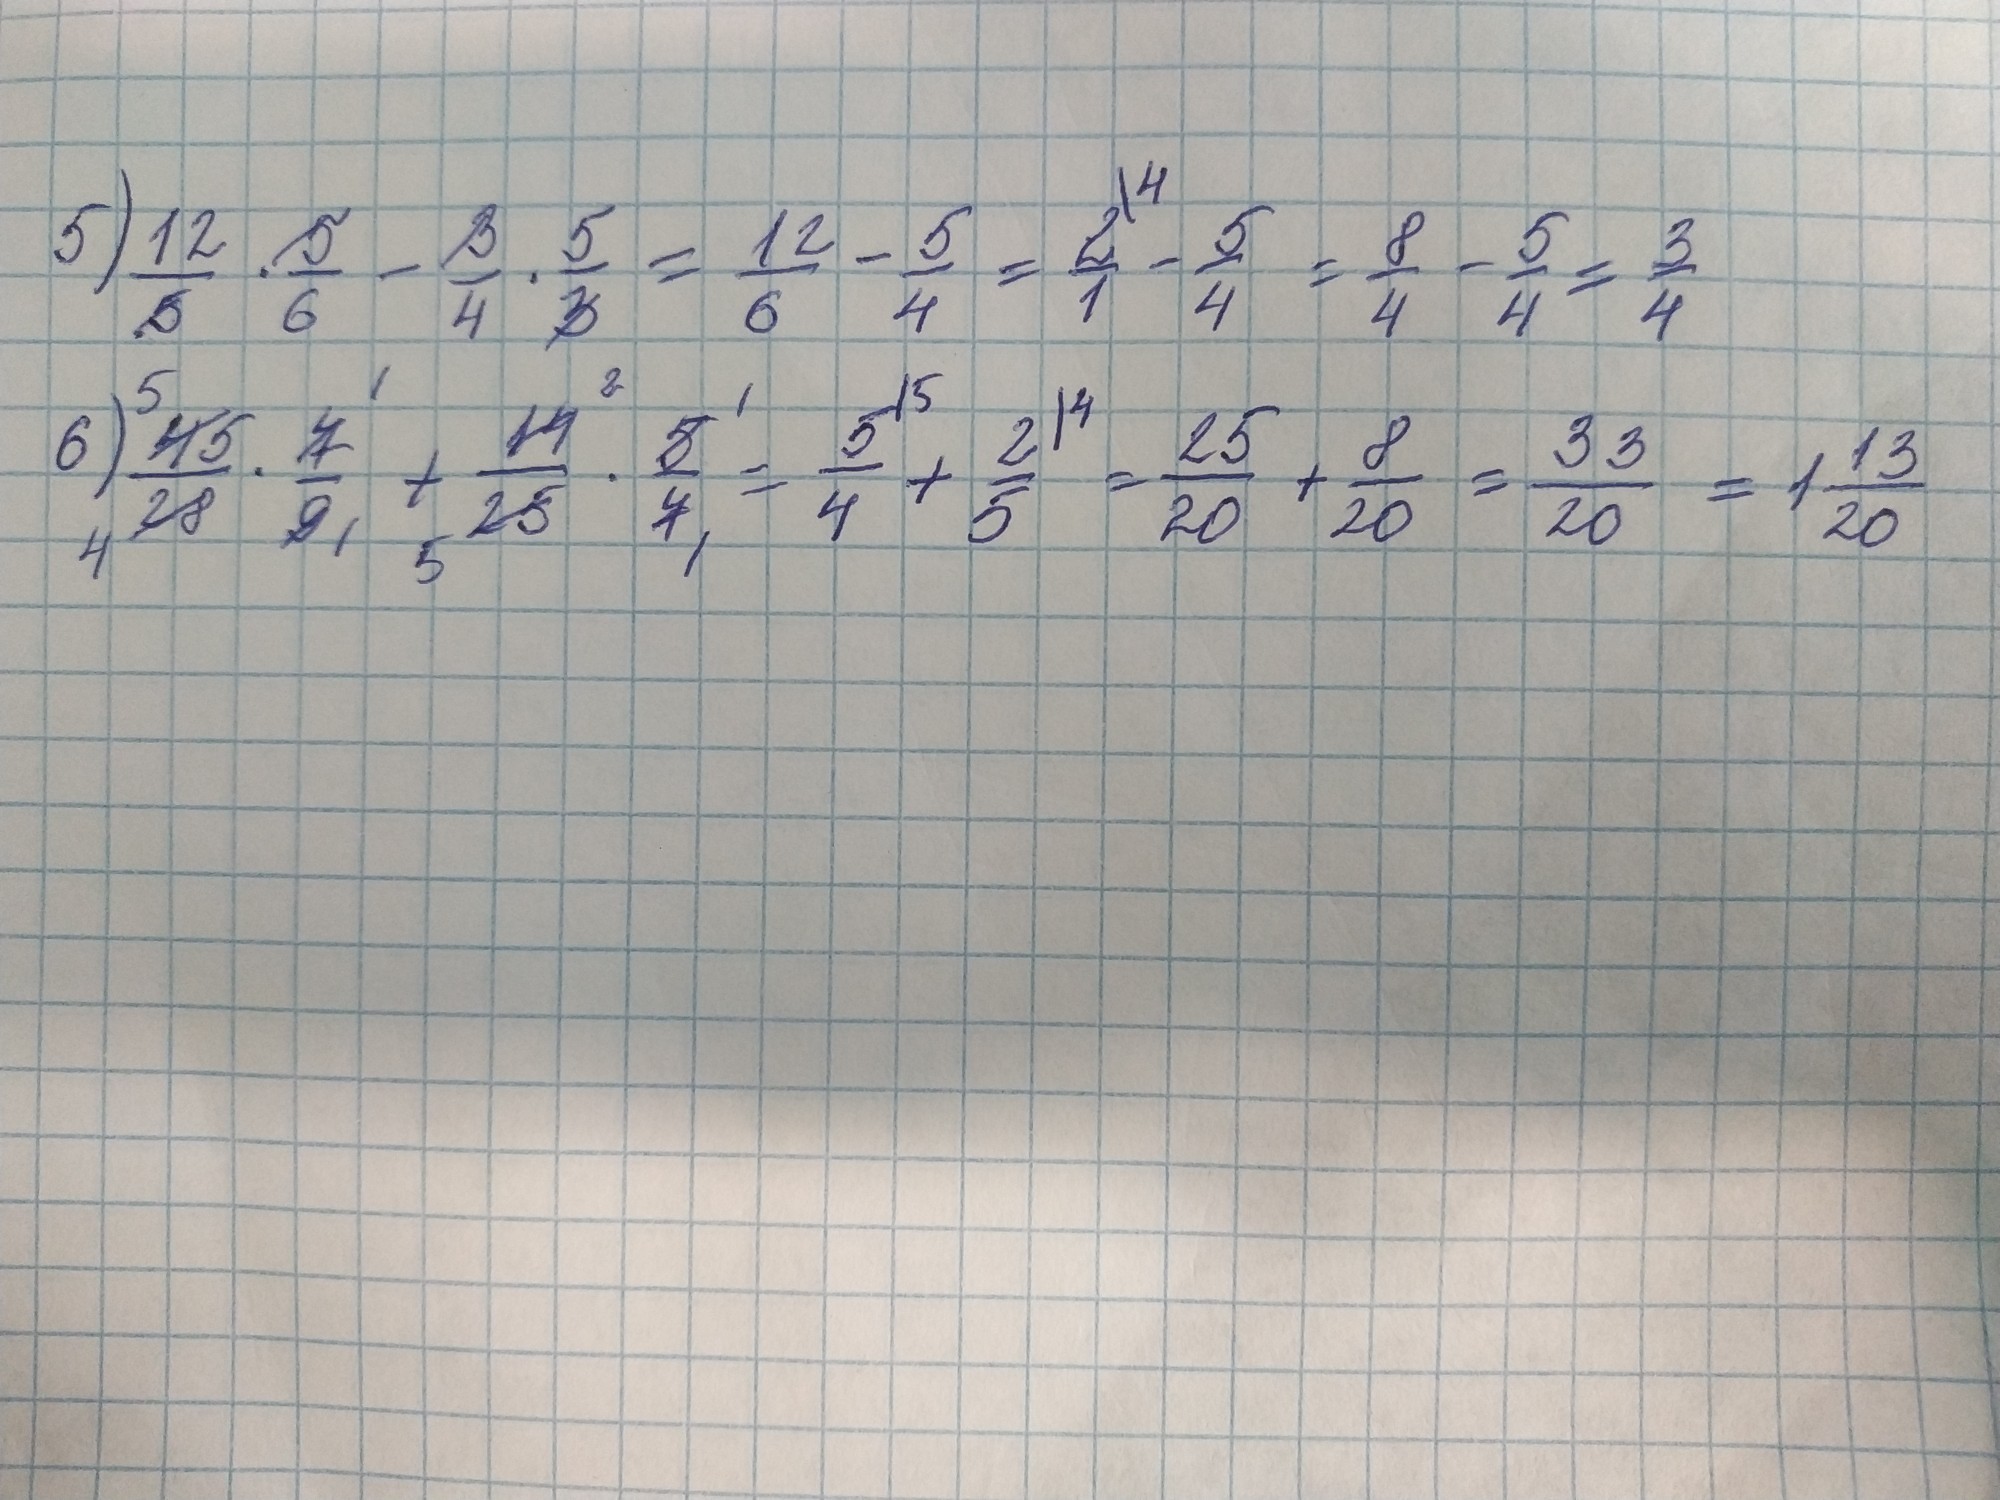 5) 12/5 · 5/6 - 3/4 · 5/3 = 12/6 - 5/4 = 2/1 \4 - 5/4 = 8/4 - 5/4 = 3/4
6) 5 45/28 4 · 7 1/9 1 + 14 2/25 5 · 5 1/7 1 = 5/4 |5 + 2/5 |4 = 25/20 + 8/20 = 33/20 = 1 13/20